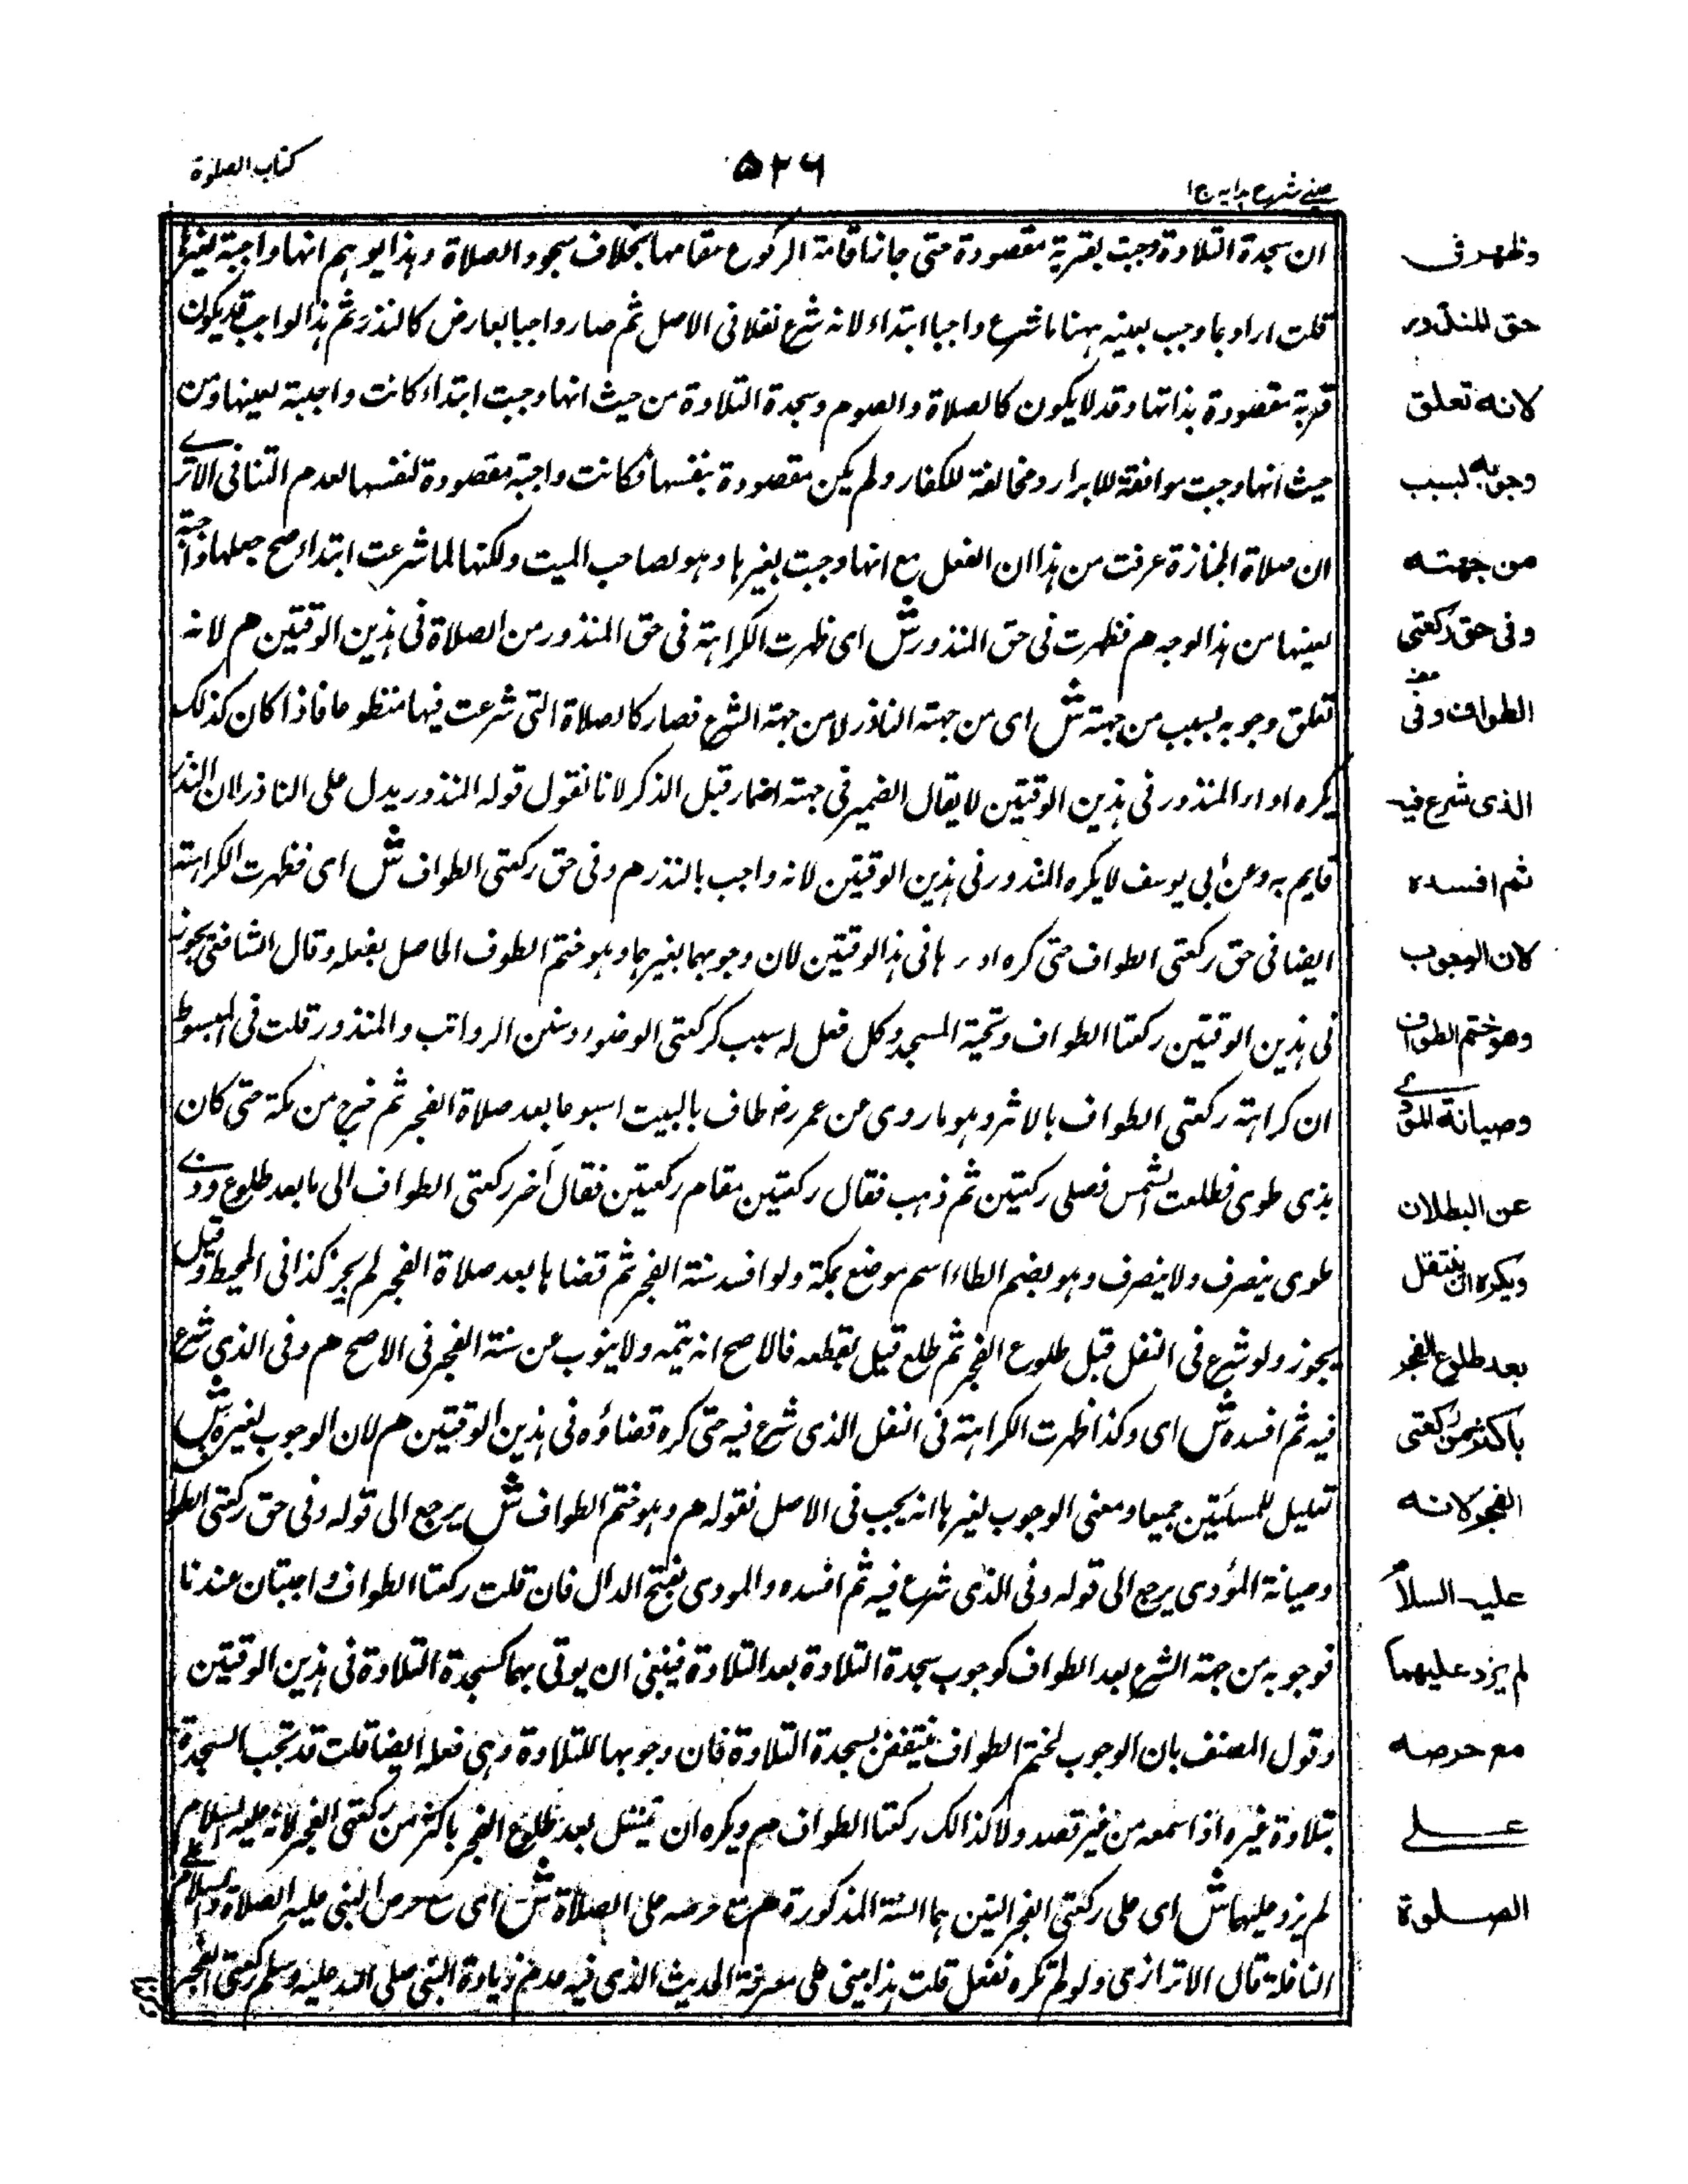 كتاب الصلوة
۵۲۶
عيني شرح هدايه ج ا
ان سجدة التلاوة وجبت بقربة مقصودة حتى جاز اقامة الركوع مقامها بخلاف سجود الصلاة وهذا يوهم انها واجبة لغيرها
قلت اراد بما وجب بعينه ههنا ما شرع واجبا ابتداء لانه شرع نفلا فى الاصل ثم صار واجبا بعارض كالنذر ثم هذا الواجب قد يكون
قربة مقصودة بذاتها وقد لا يكون كالصلاة والصوم وسجدة التلاوة من حيث انها وجبت ابتداء كانت واجبة بعينها ومن
حيث انها وجبت موافقة للابرار ومخالفة للكفار ولم يكن مقصودة بنفسها فكانت واجبة مقصودة لنفسها لعدم التنافى الا ترى
ان صلاة الجنازة عرفت من هذا ان الفعل مع انها وجبت بغيرها وهو لصاحب الميت ولكنها لما شرعت ابتداء صح جعلها واجبة
لعينها من هذا الوجه م فظهرت فى حق المنذور ش اى ظهرت الكراهة فى حق المنذور من الصلاة فى هذين الوقتين م لانه
تعلق وجوبه بسبب من جهته ش اى من جهة الناذر لا من جهة الشرع فصار كالصلاة التى شرعت فيها متطوعا فاذا كان كذلك
يكره اداء المنذور فى هذين الوقتين لا يقال الضمير فى جهته اضمار قبل الذكر لانا نقول قوله المنذور يدل على الناذر لان النذر
قايم به وعن ابى يوسف لا يكره المنذور فى هذين الوقتين لانه واجب بالنذر م وفى حق ركعتى الطواف ش اى فظهرت الكراهة
ايضا فى حق ركعتى الطواف حتى كره اد ر ها فى هذا لوقتين لان وجوبهما بغيرهما وهو ختم الطوف الحاصل بفعله وقال الشافعى يجوز
فى هذين الوقتين ركعتا الطواف وتحية المسجد وكل فعل له سبب كركعتى الوضوء وسنن الرواتب والمنذور قلت فى المبسوط
ان كراهة ركعتى الطواف بالاثر وهو ما روى عن عمر رضه طاف بالبيت اسبوعا بعد صلاة الفجر ثم خرج من مكة حتى كان
بذى طوى فطلعت الشمس فصلى ركعتين ثم ذهب فقال ركعتين مقام ركعتين فقال أخر ركعتى الطواف الى ما بعد طلوع وذى
طوى ينصرف ولا ينصرف وهو بضم الطاء اسم موضع بمكة ولو افسد سنة الفجر ثم قضاها بعد صلاة الفجر لم يجز كذا فى المحيط وقيل
يجوز ولو شرع فى النفل قبل طلوع الفجر ثم طلع قيل يقطعه فالاصح انه يتمه ولا ينوب عن سنة الفجر فى الاصح م وفى الذى شرع
فيه ثم افسده ش اى وكذا ظهرت الكراهة فى النفل الذى شرع فيه حتى كره قضاؤه فى هذين الوقتين م لان الوجوب لغيره ش
تعليل للمسألتين جميعا ومعنى الوجوب لغيرها انه يجب فى الاصل نقوله م وهو ختم الطواف ش يرجع الى قوله وفى حق ركعتى الطوا
وصيانة المؤدى يرجع الى قوله وفى الذى شرع فيه ثم افسده والمودى بفتح الدال فان قلت ركعتا الطواف واجبتان عندنا
فوجوبه من جهة الشرع بعد الطواف كوجوب سجدة التلاوة بعد التلاوة فينبغى ان يوتى بهما كسجدة التلاوة فى هذين الوقتين
وقول المصنف بان الوجوب لختم الطواف ينتقض بسجدة التلاوة فان وجوبها للتلاوة وهى فعله ايضا قلت قد تجب السجدة
بتلاوة غيره اذا سمعه من غير قصد ولا كذالك ركعتا الطواف م ويكره ان يتنفل بعد طلوع الفجر باكثر من ركعتى الفجر لانه عليه السلام
لم يزد عليهما ش اى على ركعتى الفجر التين هما السنة المذكورة م مع حرصه على الصلاة ش اى مع حرص النبى عليه الصلاة والسلام على
النافلة قال الاترازى ولو لم تكره لفعل قلت هذا مبنى على معرفة الحديث الذى فيه عدم زيادة النبى صلى الله عليه وسلم ركعتى الفجر
وظهر فى
حق المنذور
لانه تعلق
وجوبه بسبب
من جهته
وفى حق ركعتى
الطواف وفى
الذى شرع فيه
ثم افسده
لان الوجوب
وهو ختم الطواف
وصيانة المؤدى
عن البطلان
ويكره ان يتنفل
بعد طلوع الفجر
باكثر من ركعتى
الفجر لانه
عليه السلام
لم يزد عليهما
مع حرصه
على
الصلوة